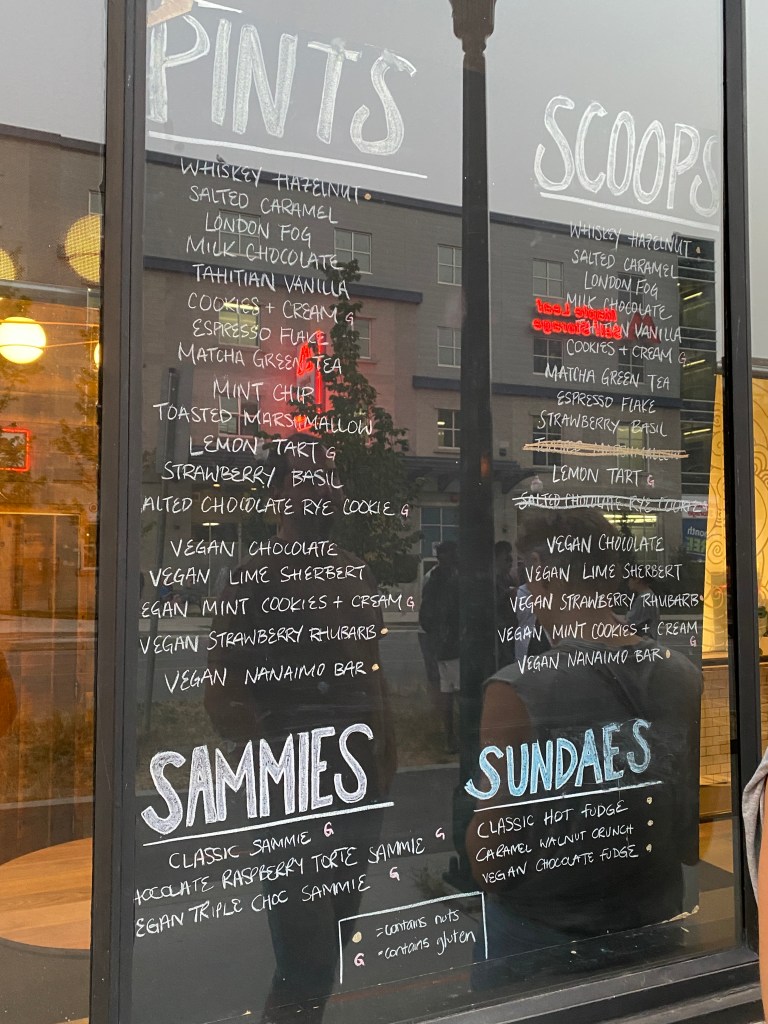 PINTS
WHISKEY HAZELNUT
SALTED CARAMEL
LONDON FOG
MILK CHOCOLATE
TAHITIAN VANILLA
COOKIES + CREAM G
ESPRESSO FLAKE
MATCHA GREEN TEA
MINT CHIP
TOASTED MARSHMALLOW
LEMON TART G
STRAWBERRY BASIL
ALTED CHOCOLATE RYE COOKIE G
VEGAN CHOCOLATE
VEGAN LIME SHERBERT
EGAN MINT COOKIES + CREAM G
VEGAN STRAWBERRY RHUBARB
VEGAN NANAIMO BAR
SCOOPS
WHISKEY HAZELNUT
SALTED CARAMEL
LONDON FOG
MILK CHOCOLATE
TAHITIAN VANILLA
COOKIES + CREAM G
MATCHA GREEN TEA
ESPRESSO FLAKE
STRAWBERRY BASIL
LEMON TART G
SALTED CHOCOLATE RYE COOKIE
VEGAN CHOCOLATE
VEGAN LIME SHERBERT
VEGAN STRAWBERRY RHUBARB
VEGAN MINT COOKIES + CREAM
G
VEGAN NANAIMO BAR
SAMMIES
CLASSIC SAMMIE G
HOCOLATE RASPBERRY TORTE SAMMIE G
EGAN TRIPLE CHOC SAMMIE G
SUNDAES
CLASSIC HOT FUDGE
CARAMEL WALNUT CRUNCH
VEGAN CHOCOLATE FUDGE
= contains nuts
G = contains gluten